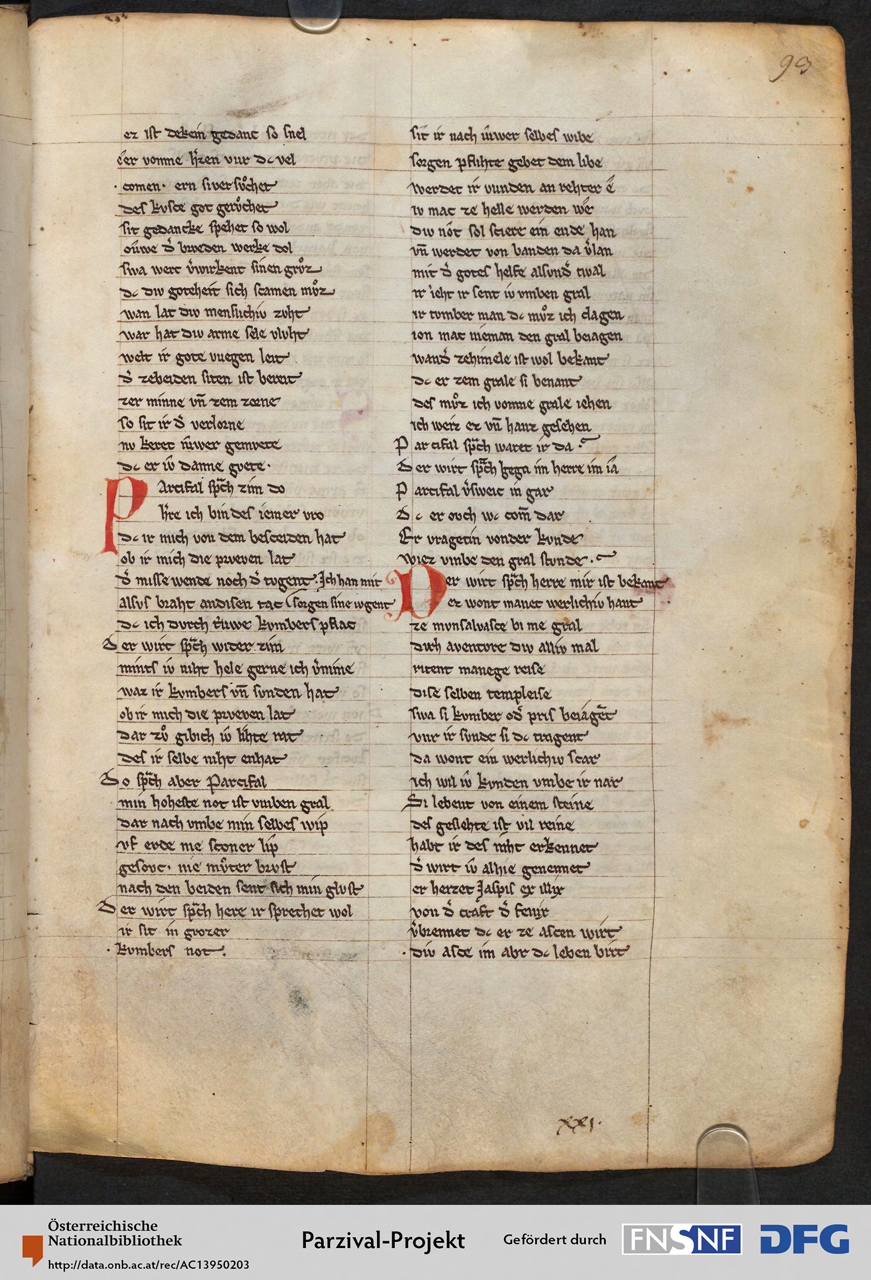 93
ez ist dekein gedanc so snel
ê er vomme h̾zen vur dc vel
comen· ern si versůchet
des kvsce got gerůchet
sit gedancke spehet so wol
oüwe d̾ brœden werke dol
swa wert v̾wirkent sinen grůz
dc div gotheit sich scamen můz
wan lat div menslichiv zvht
war hat div arme sele vlvht
welt ir gote vuegen leit
d̾ ze beiden siten ist bereit
zer minne vn̄ zem zorne
so sit ir d̾ verlorne
nv keret iuwer gemvete
dc er iv danne gvete·
Parcifal sp̄ch zim do
h̾re ich bin des iemer vro
dc ir mich von dem besceiden hat
ob ir mich die prveven lat
d̾ misse wende noch d̾ tvgent· Ich han mit
alsvs braht an disen tac sorgen sine ivgent
dc ich dvrch trüwe kvmbers pflac
Der wirt sp̄ch wider zim
nimts iv niht hele gerne ich v̾nime
waz ir kvmbers vn̄ svnden hat
ob ir mich die prveven lat
dar zů gibich iv lihte rat
des ir selbe niht enhat
Do sp̄ch aber Parcifal
min hoheste not ist vmben gral
dar nach vmbe min selbes wip
vf erde nie sconer lip
gesovc· nie můter brvst
nach den beiden sent sich min glvst
Der wirt sp̄ch here ir sprechet wol
ir sit in grozer
kvmbers not·
sit ir nach iuwer selbes wibe
sorgen pflihte gebet dem libe
werdet ir vunden an rehter ê
iv mac ze helle werden wê
div nôt sol sciere ein ende han
vn̄ werdet von banden da v̾lan
mit d̾ gotes helfe alsvnd̾ twal
ir ieht ir sent iv vmben gral
ir tvmber man dc můz ich clagen
ion mac nieman den gral beiagen
wand̾ ze himele ist wol bekant
dc er zem grale si benant
des můz ich vomme grale iehen
ich weiz ez vn̄ hanz gesehen
Parcifal sp̄ch waret ir da·
Der wirt sp̄ch gegn im herre im iâ
Parcifal v̾sweic in gar
Dc er ovch wc com̄ dar
Er vragetin von der kvnde
wiez vmbe den gral stvnde·
Der wirt sp̄ch herre mir ist bekant
ez wont manec werlichiv hant
ze mvnsalvasce bi me gral
dvrh aventvre div alliv mal
ritent manege reise
dise selben templeise
swa si kvmber od̾ pris beiaget
vur ir svnde si dc tragent
da wont ein werlichiv scar
ich wil iv kvnden vmbe ir nar
Si lebent von einem steine
des geslehte ist vil reine
habt ir des niht erkennet
d̾ wirt iv alhie genennet
er herzet Jaspis ex illix
von d̾ craft d̾ fenix
v̾brennet dc er ze ascen wirt
div asce im abr dc leben birt
xxi·
Österreichische
Nationalbibliothek
http://data.onb.ac.at/rec/AC13950203
Parzival-Projekt
Gefördert durch
FNSNF
DFG